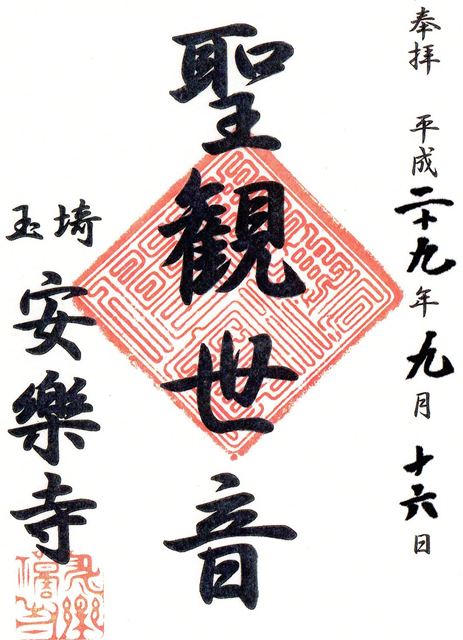 奉拝 平成二十九年九月十六日
聖観世音
埼玉
安樂寺